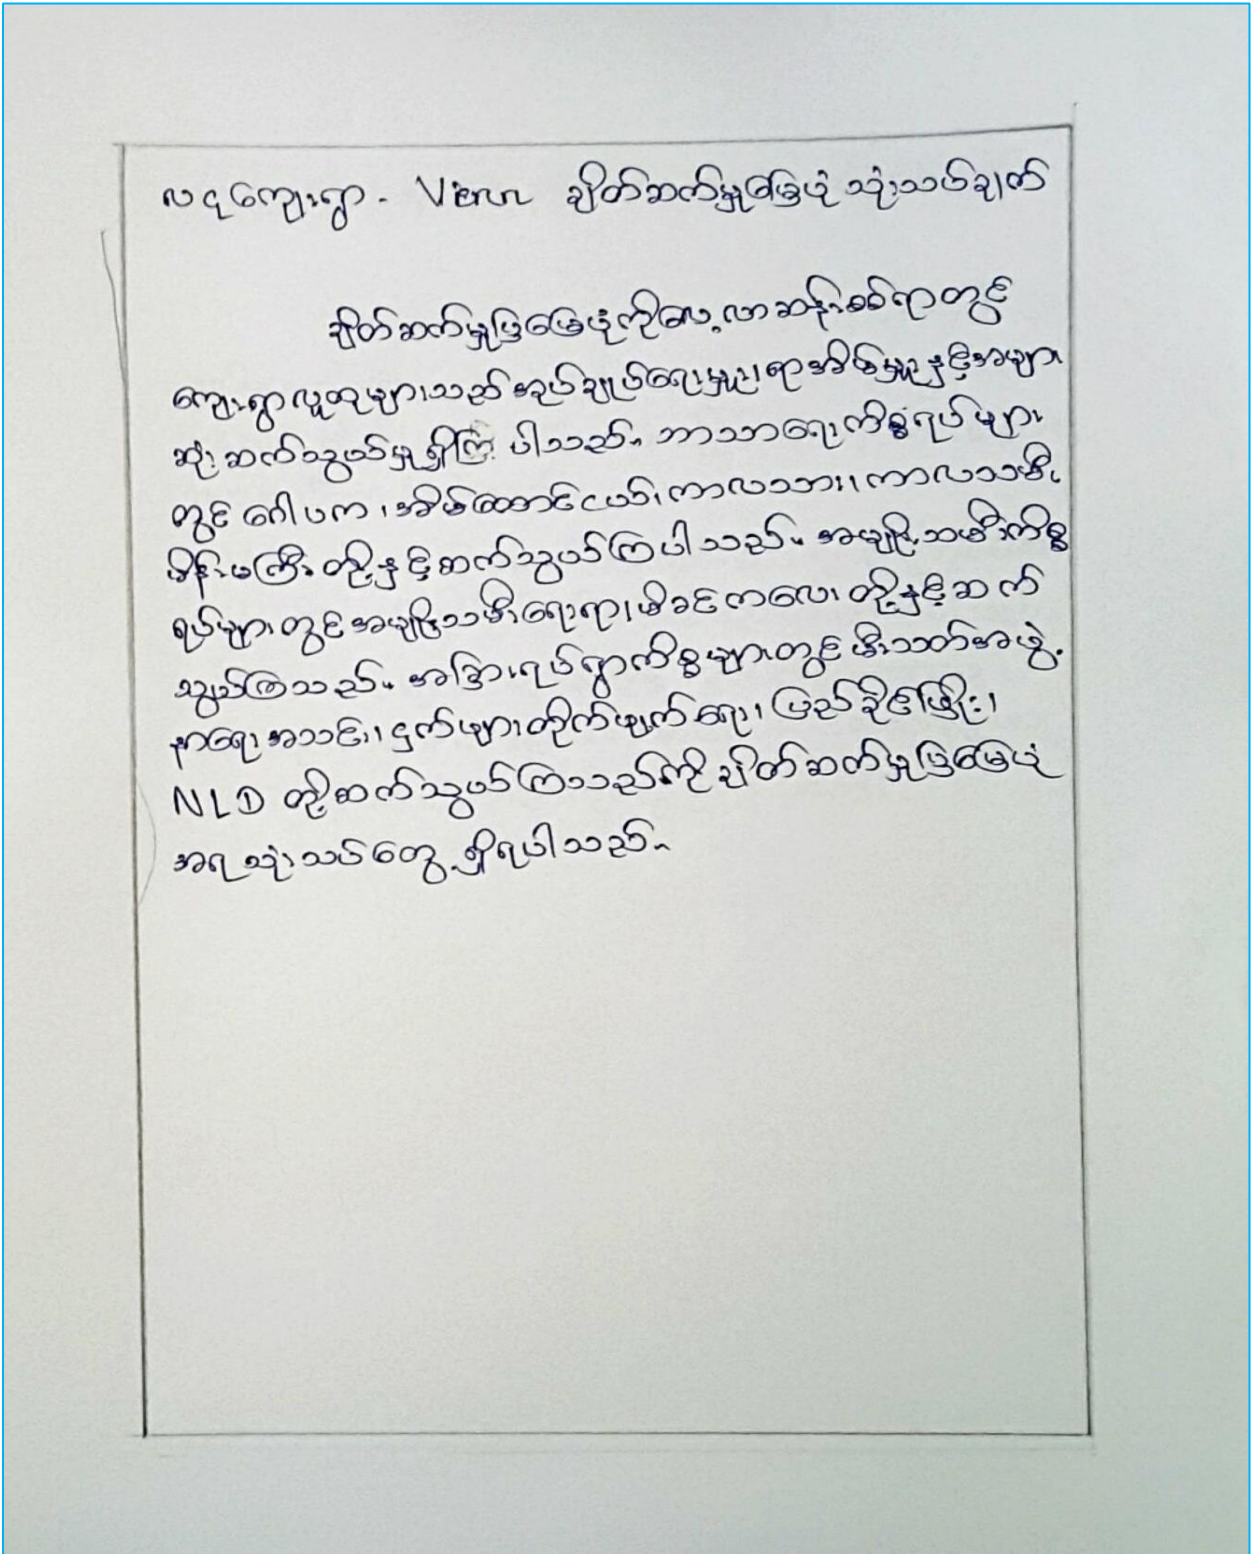 လငုကျေးရွာ - Venn ချိတ်ဆက်မှုမြေပုံ သုံးသပ်ချက်
ချိတ်ဆက်မှုပြမြေပုံကိုလေ့လာဆန်းစစ်ရာတွင်
ကျေးရွာလူထုများသည် အုပ်ချုပ်ရေးမှူး၊ ရာအိမ်မှူးနှင့်အများ
ဆုံး ဆက်သွယ်မှုရှိကြ ပါသည်။ ဘာသာရေးကိစ္စရပ်များ
တွင် ဂေါပက ၊ အိမ်ထောင်ငယ်၊ ကာလသား၊ ကာလသမီး
မိန်းမကြီး တို့နှင့်ဆက်သွယ်ကြပါသည်။ အမျိုးသမီးကိစ္စ
ရပ်များတွင် အမျိုးသမီးရေးရာ၊ မိခင်ကလေး တို့နှင့်ဆက်
သွယ်ကြသည်။ အခြားရပ်ရွာကိစ္စများတွင် မီးသတ်အဖွဲ့၊
နာရေးအသင်း၊ ငှက်ဖျားတိုက်ဖျက်ရေး၊ ပြည်ခိုင်ဖြိုး၊
NLD တို့ဆက်သွယ်ကြသည်ကို ချိတ်ဆက်မှုပြမြေပုံ
အရ သုံးသပ်တွေ့ရှိရပါသည်။